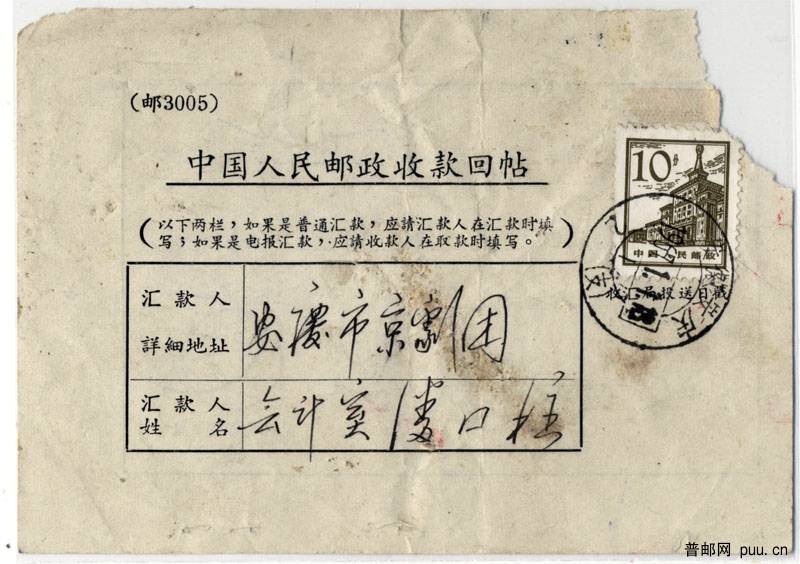 (邮3005)
中国人民邮政收款回帖
(以下两栏，如果是普通汇款，应請汇款人在汇款时填
写；如果是电报汇款，应請收款人在取款时填写。)
10分
中国人民邮政
汇款人
詳細地址
安庆市京剧团
汇款人
姓名
会计室潘
收汇局投送日戳
普邮网 puu.cn